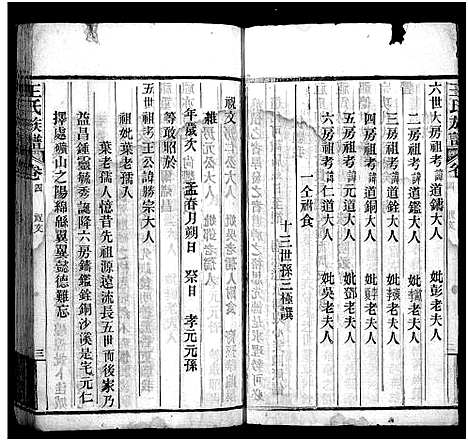 王氏族譜 卷四 祝文
六世大房祖考諱道鑄大人 妣彭老夫人
二房祖考諱道鑑大人 妣
三房祖考諱道銓大人 妣
四房祖考諱道銅大人 妣
五房祖考諱道 大人 妣鄧老夫人
六房祖考諱仁道大人 妣吳老夫人
一仝祔食
十三世孫三極譔
祝文
維
年歲次 孟春月朔日 祭日 孝元元孫
等敢昭於
祖考王公諱勝宗大人
祖妣葉老孺人
葉老孺人憶昔先祖源遠流長五世而後家乃
益昌鍾靈毓秀誕降六房鑄鑑銓銅沙溪是宅元仁
擇處礦山之陽綿綿翼翼懿德難忘
王氏族譜 卷四 祝文 三